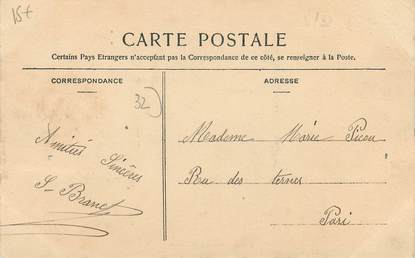 15+
CARTE POSTALE
Certains Pays Etrangers n'acceptant pas la Correspondance de ce côté, se renseigner à la Poste.
CORRESPONDANCE
ADRESSE
32
Amitiés
Sincères
Madame Marie Picou
Ru des ternes
Pari